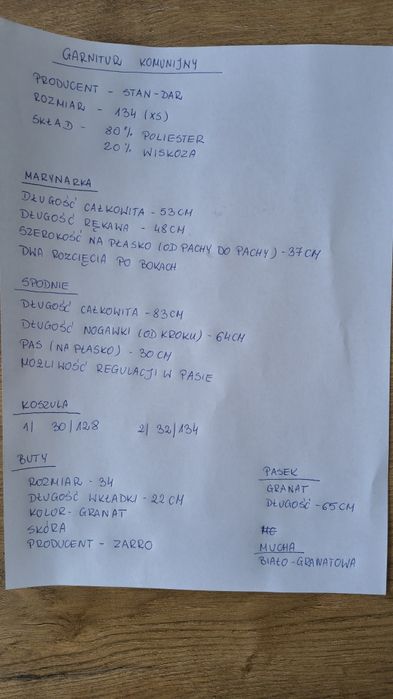 GARNITUR KOMUNIJNY
PRODUCENT - STAN-DAR
ROZMIAR - 134 (XS)
SKŁAD - 80% POLIESTER
20% WISKOZA
MARYNARKA
DŁUGOŚĆ CAŁKOWITA - 53CM
DŁUGOŚĆ RĘKAWA - 48CM
SZEROKOŚĆ NA PŁASKO (OD PACHY DO PACHY) - 37CM
DWA ROZCIĘCIA PO BOKACH
SPODNIE
DŁUGOŚĆ CAŁKOWITA - 83CM
DŁUGOŚĆ NOGAWKI (OD KROKU) - 64CM
PAS (NA PŁASKO) - 30CM
MOŻLIWOŚĆ REGULACJI W PASIE
KOSZULA
1/ 30/128 2/ 32/134
BUTY
ROZMIAR - 34
DŁUGOŚĆ WKŁADKI - 22CM
KOLOR - GRANAT
SKÓRA
PRODUCENT - ZARRO
PASEK
GRANAT
DŁUGOŚĆ - 65CM
MUCHA
BIAŁO-GRANATOWA